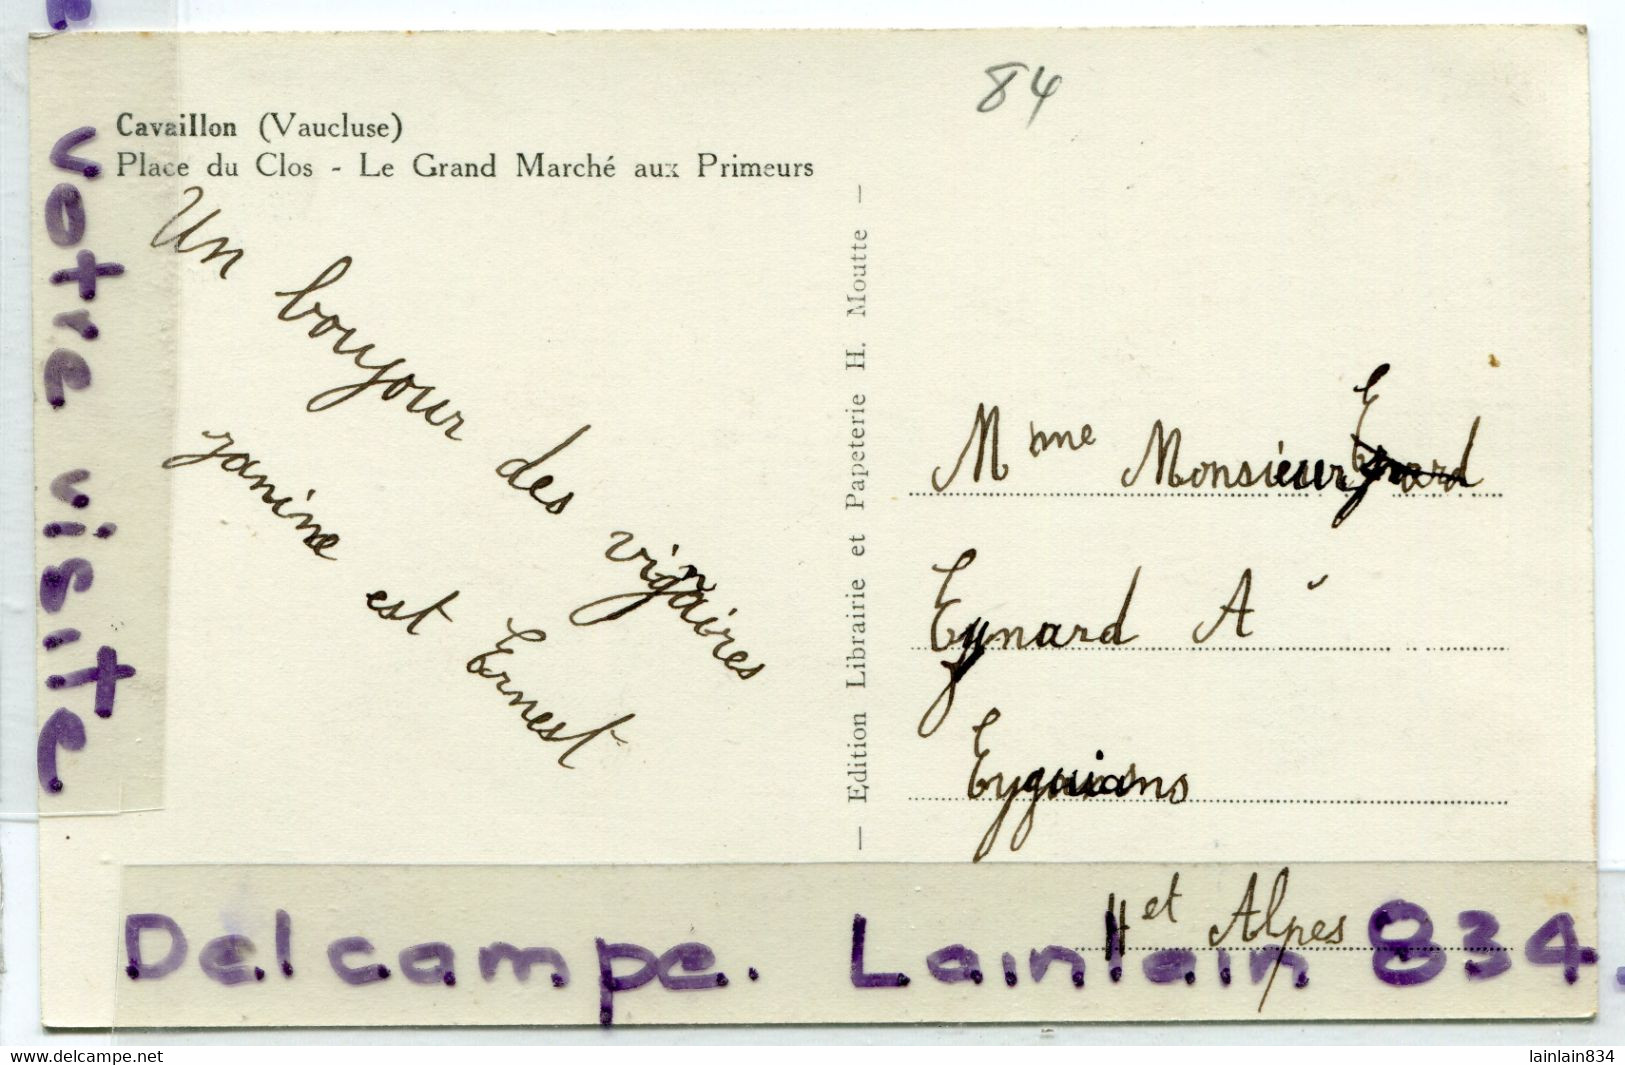 84
Cavaillon (Vaucluse)
Place du Clos - Le Grand Marché aux Primeurs
Un bonjour des vignaires
janine est Ernest
— Edition Librairie et Papeterie H. Moutte —
Mme Monsieur
Eynard A
Eyguians
Het Alpes
votre visite
Delcampe. Lainlain 834.
www.delcampe.net
lainlain834